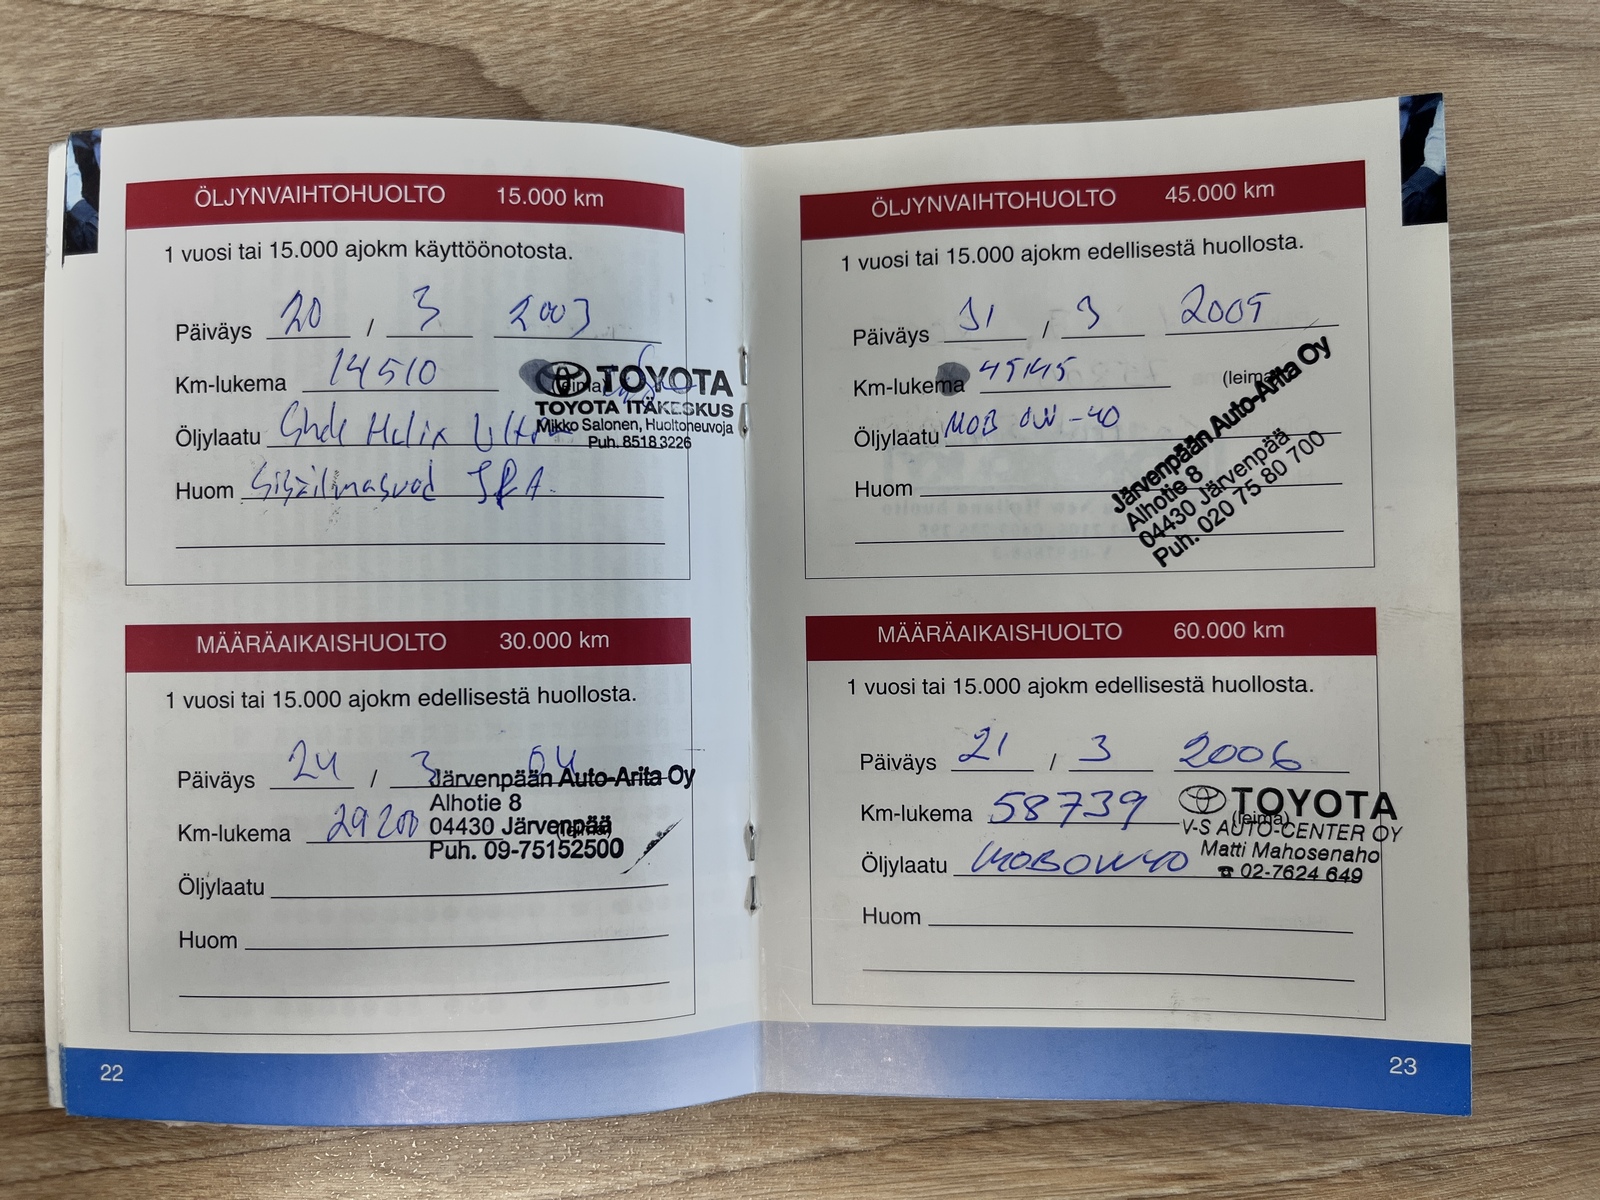 ÖLJYNVAIHTOHUOLTO 15.000 km
1 vuosi tai 15.000 ajokm käyttöönotosta.
Päiväys 20 / 3 2003
Km-lukema 14510 (leima)
TOYOTA
TOYOTA ITÄKESKUS
Mikko Salonen, Huoltoneuvoja
Puh. 8518 3226
Öljylaatu Shell Helix Ultra
Huom Sisäilmasuod
MÄÄRÄAIKAISHUOLTO 30.000 km
1 vuosi tai 15.000 ajokm edellisestä huollosta.
Päiväys 24 / 3 04
Km-lukema 29200 (leima)
Järvenpään Auto-Arita Oy
Alhotie 8
04430 Järvenpää
Puh. 09-75152500
Öljylaatu
Huom
22
ÖLJYNVAIHTOHUOLTO 45.000 km
1 vuosi tai 15.000 ajokm edellisestä huollosta.
Päiväys 31 / 3 2005
Km-lukema 45145 (leima)
Öljylaatu MOB 0W-40
Huom
Järvenpään Auto-Arita Oy
Alhotie 8
04430 Järvenpää
Puh. 020 75 80 700
MÄÄRÄAIKAISHUOLTO 60.000 km
1 vuosi tai 15.000 ajokm edellisestä huollosta.
Päiväys 21 / 3 2006
Km-lukema 58739 (leima)
TOYOTA
V-S AUTO-CENTER OY
Matti Mahosenaho
☎ 02-7624 649
Öljylaatu MOBOW40
Huom
23